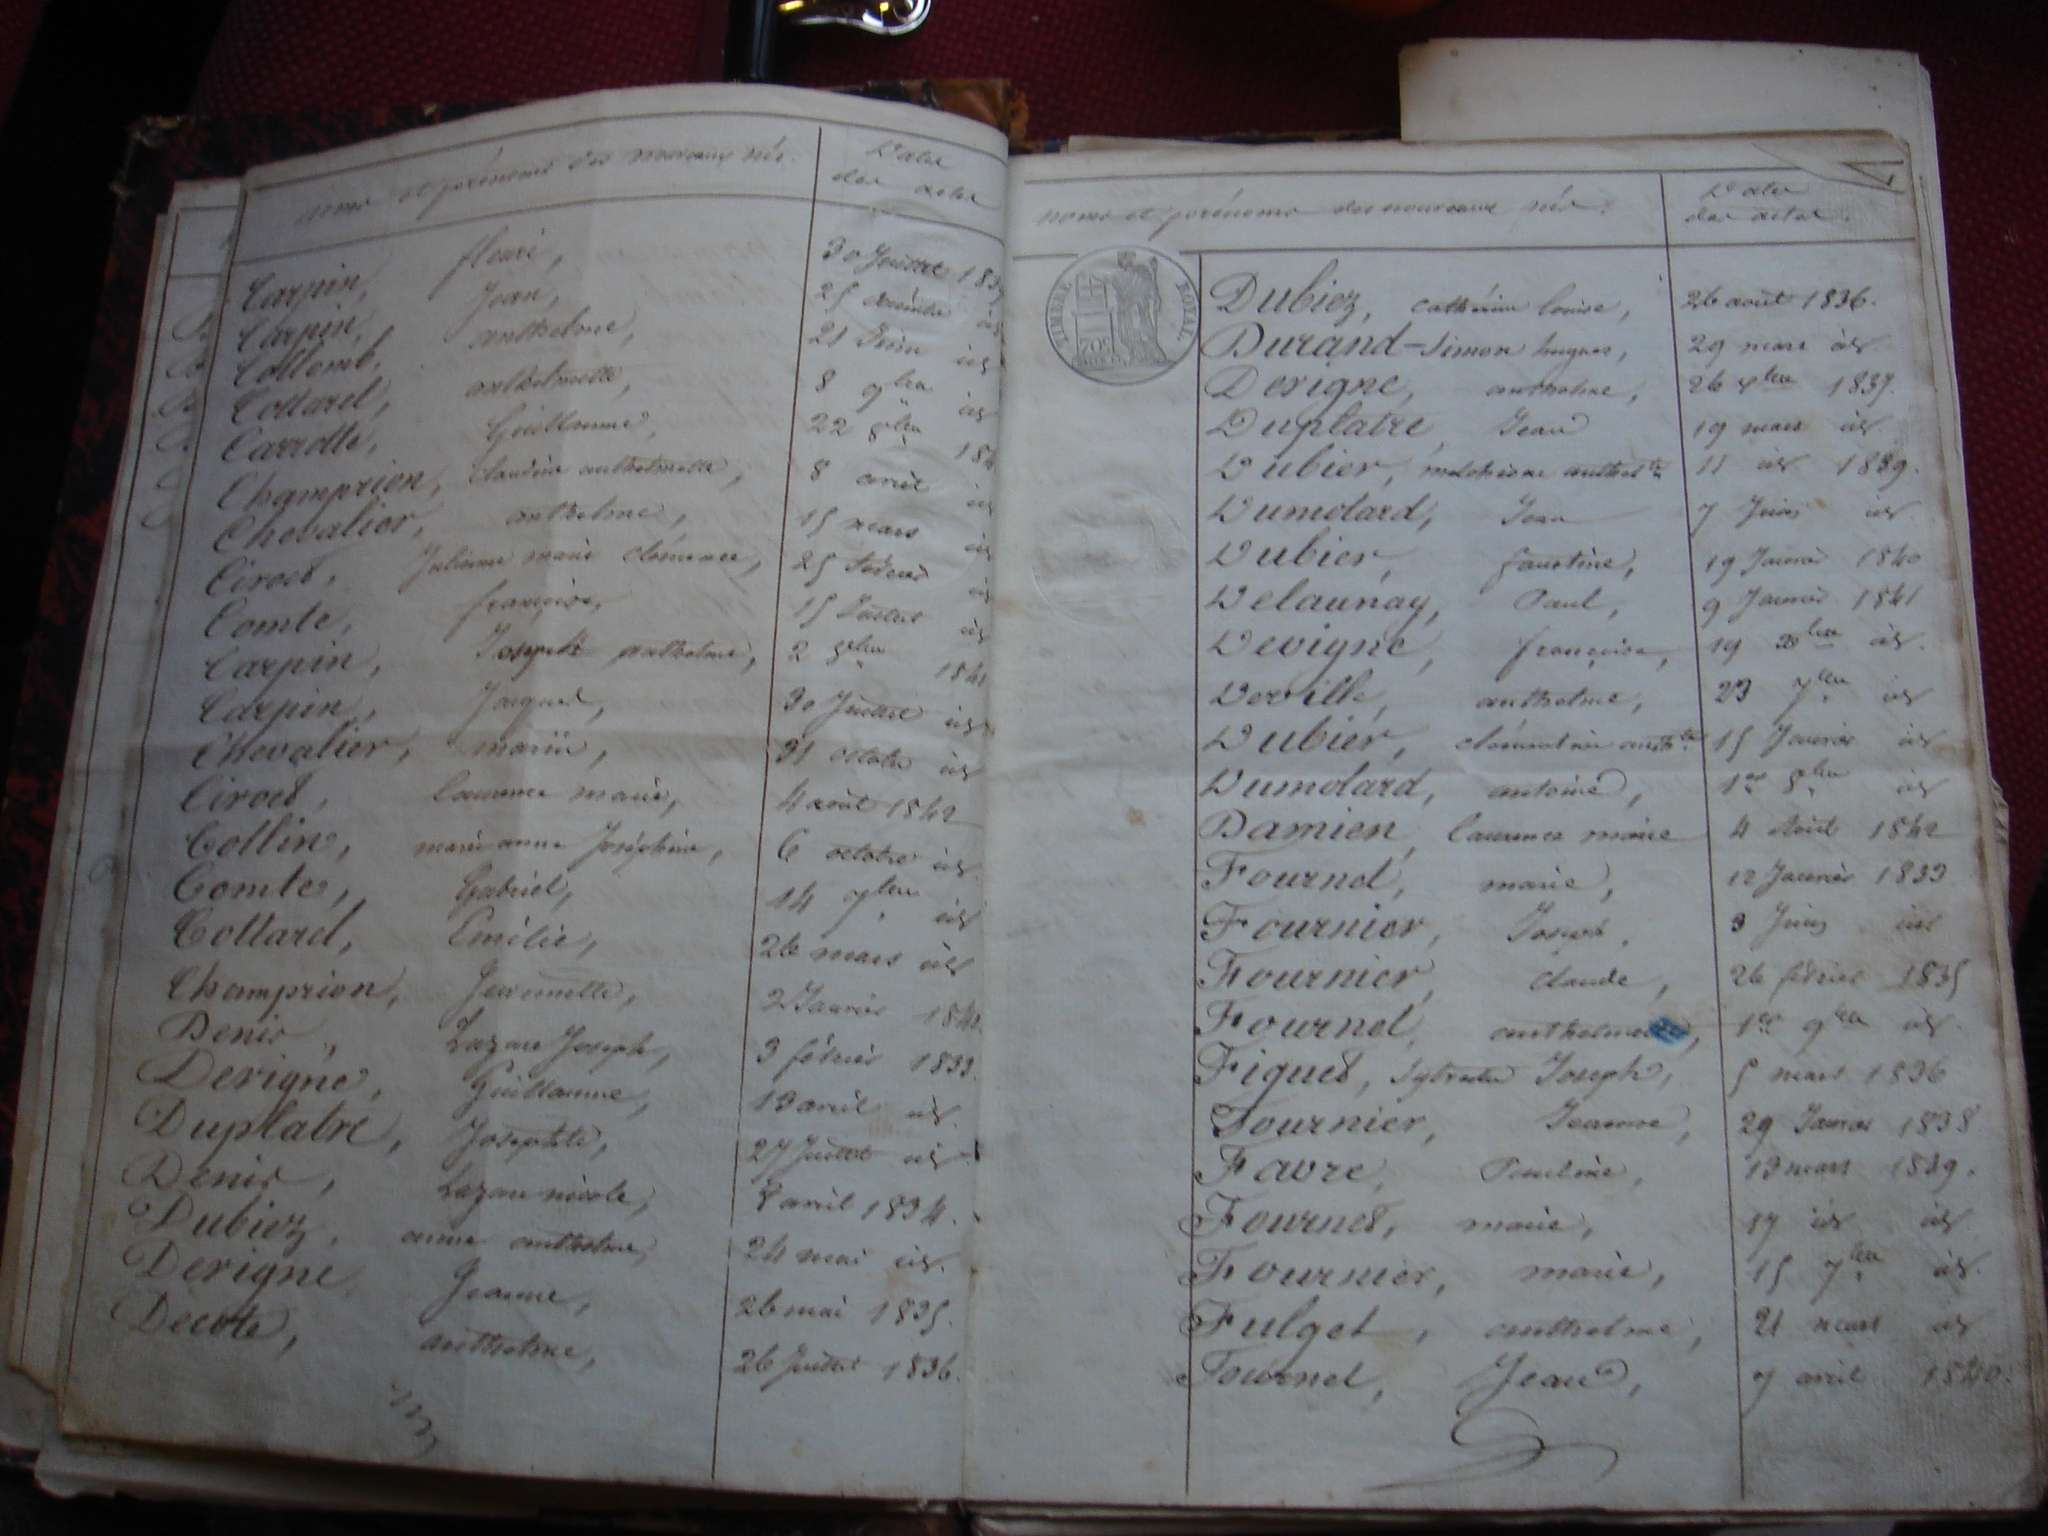 noms et prénoms des nouveaux nés.
Dates
des actes
Carpin, fleuri, 30 Juillet
Carpin, Jean, 25 décembre id
Collomb, anthelme, 21 Juin id
Cottarel, anthelmette, 8 9bre id
Carrotte, Guillaume, 22 8bre 184
Champrion, Claudine anthelmette, 8 avril id
Chevalier, anthelme, 15 mars id
Ciroud, Julienne marie clémence, 25 février id
Comte, françoise, 15 Juillet id
Carpin, Joseph anthelme, 2 8bre 1841
Carpin, Jacques, 30 Juillet id
Chevalier, marie, 31 octobre id
Ciroud, laurence marie, 4 août 1842
Collin, marie anne Joséphine, 6 octobre id
Comte, Gabriel, 14 9bre id
Cottard, Emilie, 26 mars id
Champrion, Jeannette, 2 Janvier
Denis, Lazare Joseph, 3 février 1833.
Devigne, Guillaume, 13 avril id.
Duplatre, Josephte, 27 Juillet id.
Denis, Lazare nicole, 8 avril 1834.
Dubiez, anne anthelme, 24 mai id.
Devigne Jeanne, 26 mai 1835.
Decote, anthelme, 26 Juillet 1836.
noms et prénoms des nouveaux nés.
Dates
des actes.
TIMBRE ROYAL
Dubiez, cathérine louise, 26 août 1836.
Durand-Simon hugues, 29 mars id.
Devigne, anthelme, 26 1837.
Duplatre, Jean 19 mars id.
Dubier, melchione 11 id 1839.
Dumolard, Jean 7 Juin id.
Dubier, faustine, 19 Janvier 1840
Delaunay, Paul, 9 Janvier 1841
Devigne, françoise, 19 id.
Doville, anthelme, 23 7bre id
Dubier, 15 Janvier id
Dumolard, antoine, 1er 8bre id
Damien, laurence marie 4 Août 1842
Fournel, marie, 12 Janvier 1833
Fournier, Joseph, 3 Juin id
Fournier, claude, 26 février 1835
Fournel, 1er 9bre id.
Figuet, Sylvestre Joseph, 5 mars 1836
Fournier, Jeanne, 29 Janvier 1838
Favre, Pauline, 13 mars 1839.
Fournet, marie, 17 id id
Fournier, marie, 15 7bre id.
Fulget, anthelme, 21 mars id
Fournel, Jean, 7 avril 1840.